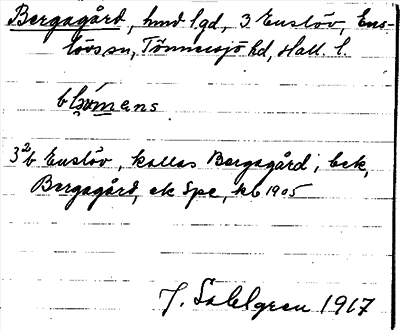 Bergagård, hmd lgd, 3 Enslöv, Ens-
lövs sn, Tönnersjö hd, Hall. l.
3²b Enslöv, kallas Bergagård; bek,
Bergagård, ek Spe, kb 1905
J. Sahlgren 1917